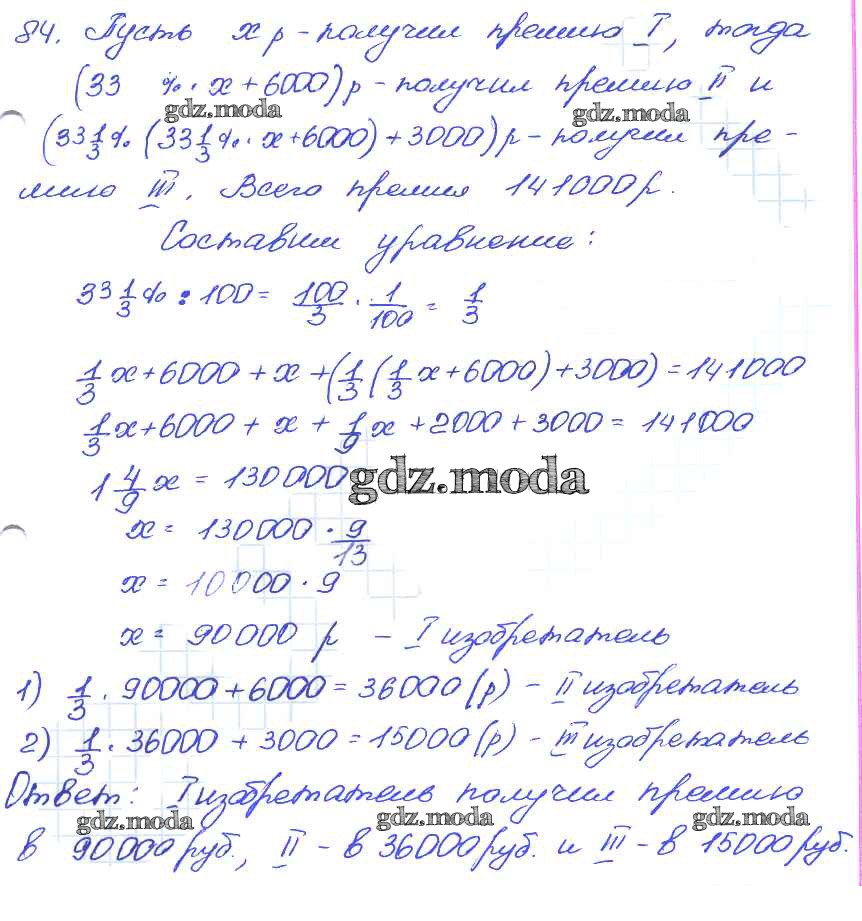 84. Пусть x р - получил премию I, тогда
(33 %· x + 6000) р - получил премию II и
gdz.moda
gdz.moda
(33 1/3 % (33 1/3 %· x + 6000) + 3000) р - получил пре-
мию III. Всего премия 141000 р.
Составим уравнение:
33 1/3 % : 100 = 100/3 · 1/100 = 1/3
1/3 x + 6000 + x + (1/3 (1/3 x + 6000) + 3000) = 141000
1/3 x + 6000 + x + 1/9 x + 2000 + 3000 = 141000
1 4/9 x = 130000
gdz.moda
x = 130000 · 9/13
x = 10000 · 9
x = 90000 р - I изобретатель
1) 1/3 · 90000 + 6000 = 36000 (р) - II изобретатель
2) 1/3 · 36000 + 3000 = 15000 (р) - III изобретатель
Ответ: I изобретатель получил премию
gdz.moda
gdz.moda
gdz.moda
в 90000 руб., II - в 36000 руб. и III - в 15000 руб.